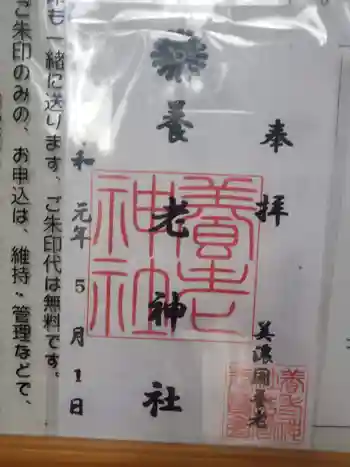 奉拝
美濃國養老
養老神社
養老神社
和元年5月1日
も一緒に送ります、ご朱印代は無料です。
ご朱印のみの、お申込は、維持・管理などで、